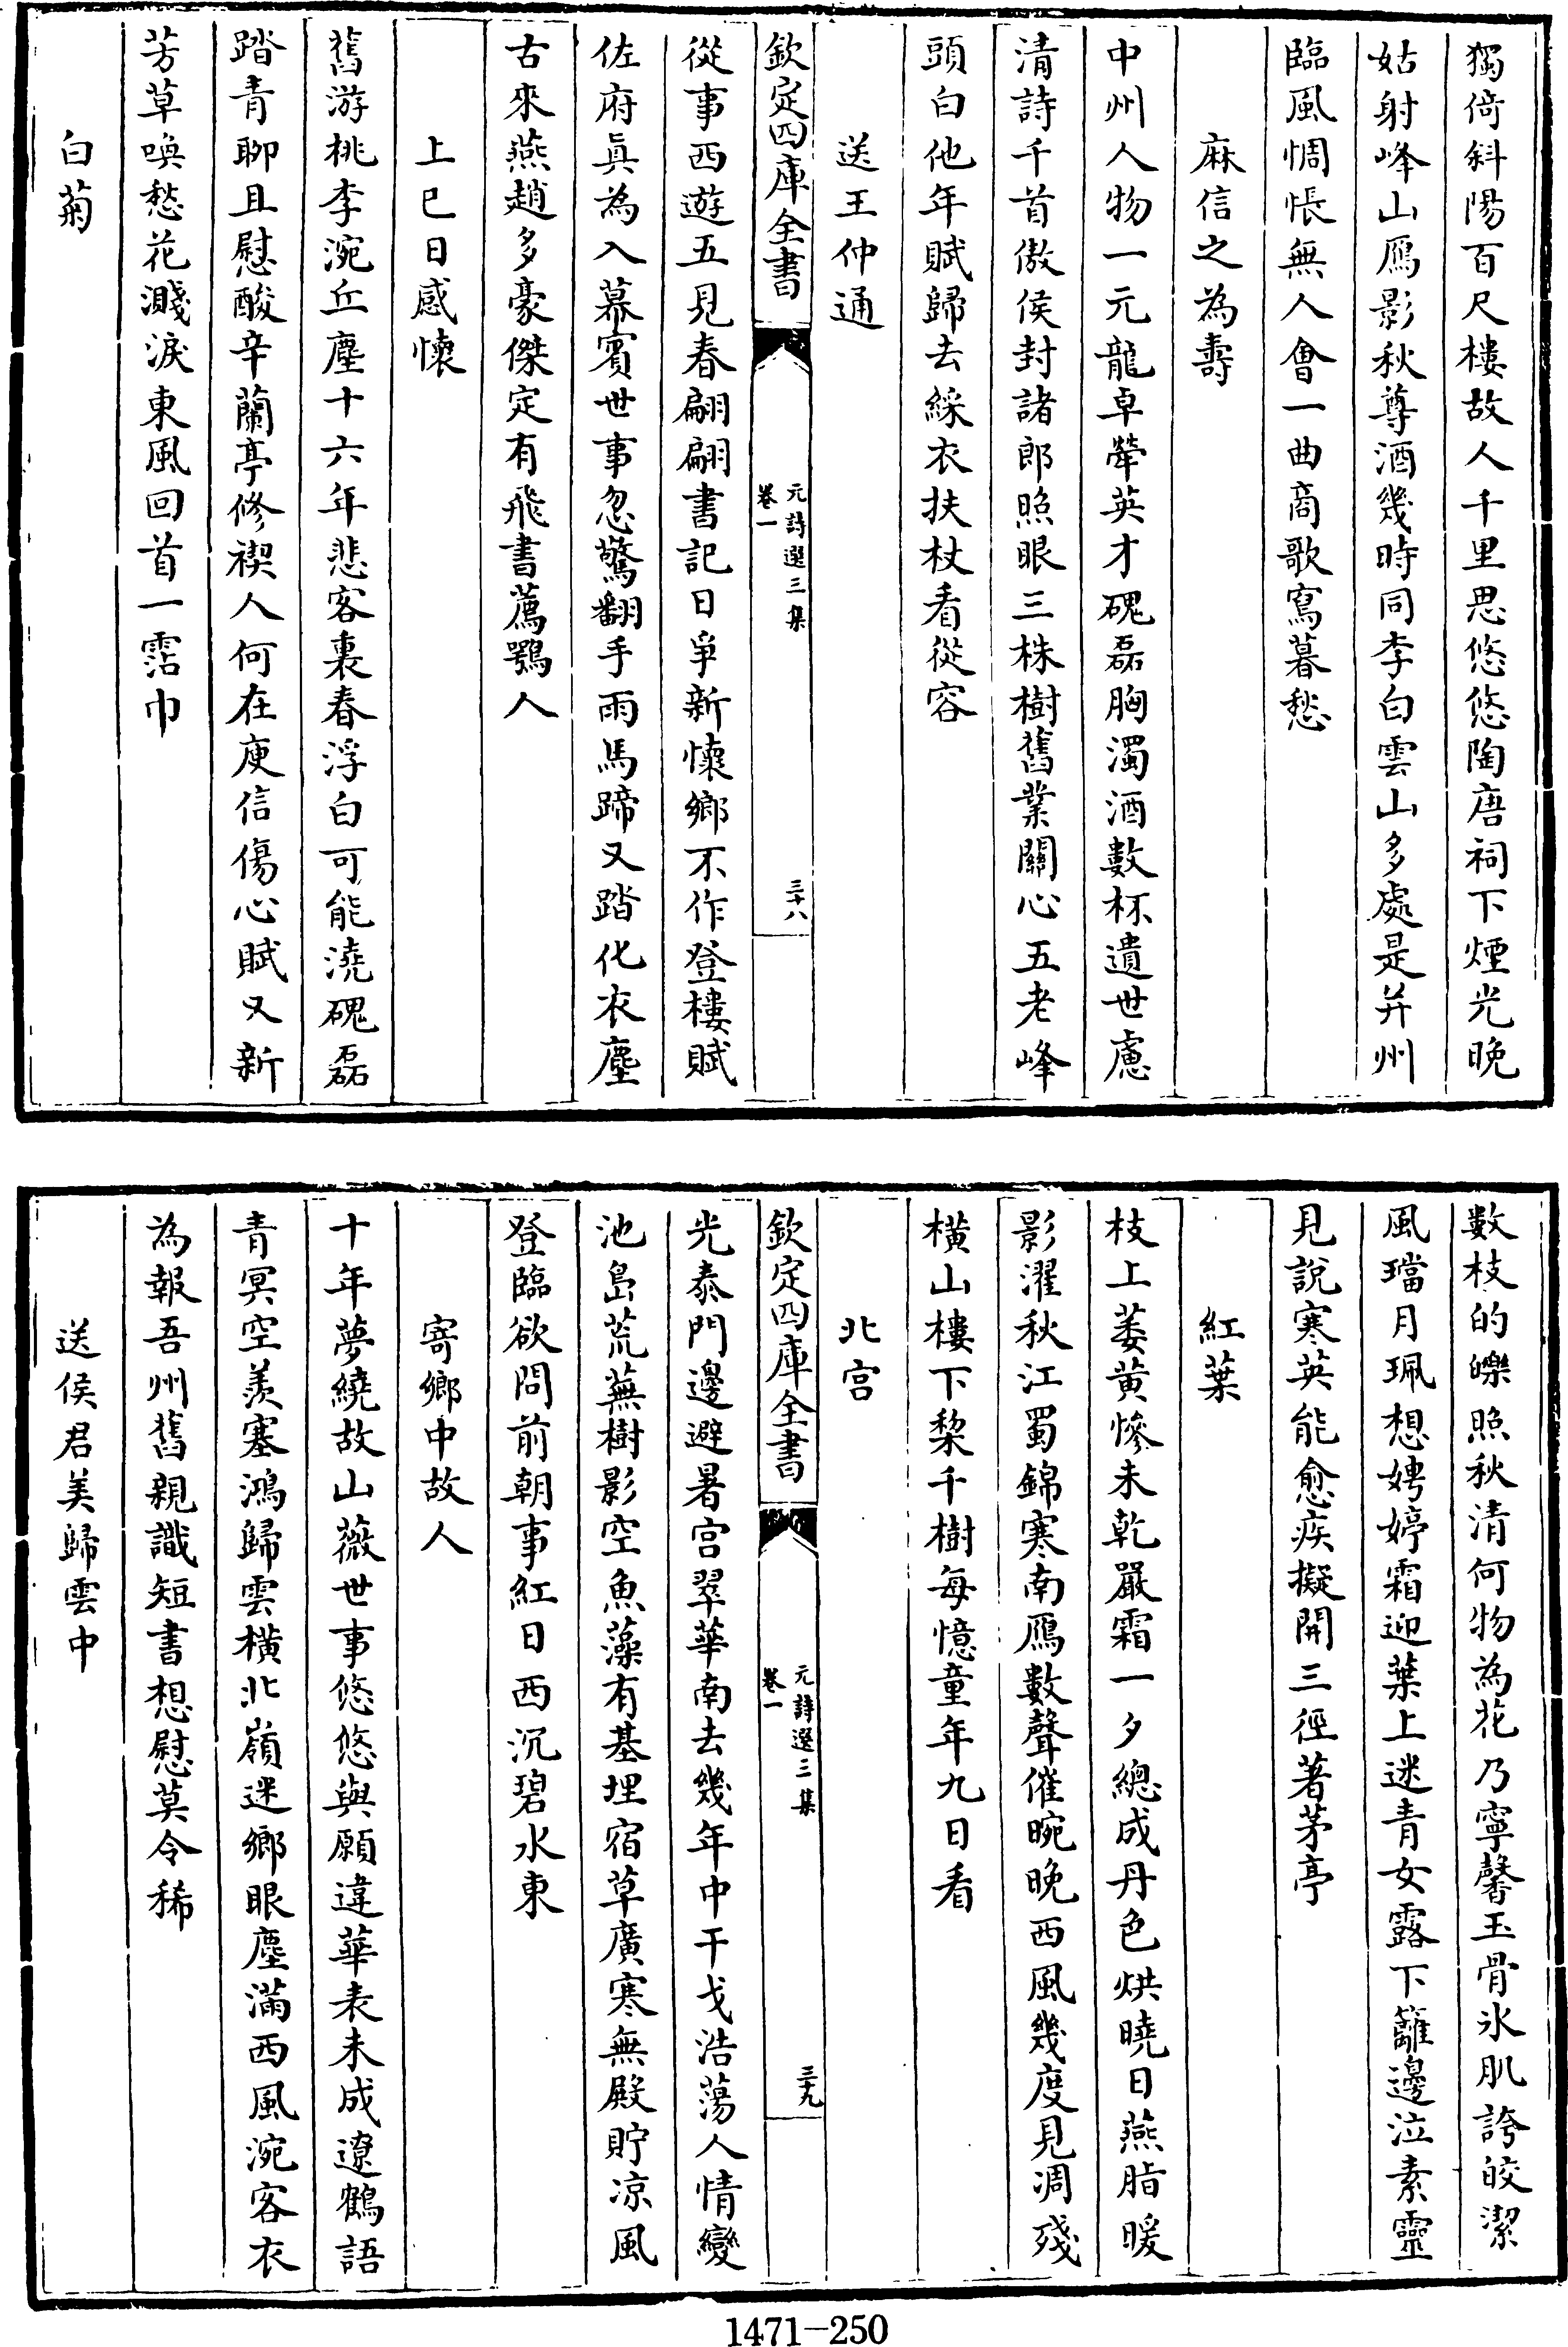 獨倚斜陽百尺樓故人千里思悠悠陶唐祠下煙光晚
姑射峰山鴈影秋尊酒幾時同李白雲山多處是并州
臨風惆悵無人會一曲商歌寫暮愁
麻信之為壽
中州人物一元龍卓犖英才磈磊胸濁酒數杯遺世慮
清詩千首傲侯封諸郎照眼三株樹舊業關心五老峰
頭白他年賦歸去綵衣扶杖看從容
送王仲通
欽定四庫全書
元詩選三集
卷一
三十八
從事西遊五見春翩翩書記日爭新懷鄉不作登樓賦
佐府真為入幕賓世事忽驚翻手雨馬蹄又踏化衣塵
古來燕趙多豪傑定有飛書薦鶚人
上巳日感懷
舊游桃李涴丘塵十六年悲客裏春浮白可能澆磈磊
踏青聊且慰酸辛蘭亭修禊人何在庾信傷心賦又新
芳草喚愁花濺淚東風回首一霑巾
白菊
數枝的皪照秋清何物為花乃寧馨玉骨氷肌誇皎潔
風璫月珮想娉婷霜迎葉上迷青女露下籬邊泣素靈
見說寒英能愈疾擬開三徑著茅亭
紅葉
枝上萎黄慘未乾嚴霜一夕總成丹色烘曉日燕脂暖
影濯秋江蜀錦寒南鴈數聲催晼晚西風幾度見凋殘
横山樓下棃千樹每憶童年九日看
北宫
欽定四庫全書
元詩選三集
卷一
三十九
光泰門邊避暑宫翠華南去幾年中干戈浩蕩人情變
池島荒蕪樹影空魚藻有基埋宿草廣寒無殿貯涼風
登臨欲問前朝事紅日西沉碧水東
寄鄉中故人
十年夢繞故山薇世事悠悠與願違華表未成遼鶴語
青冥空羨塞鴻歸雲横北嶺迷鄉眼塵滿西風涴客衣
為報吾州舊親識短書想慰莫令稀
送侯君美歸雲中
1471-250